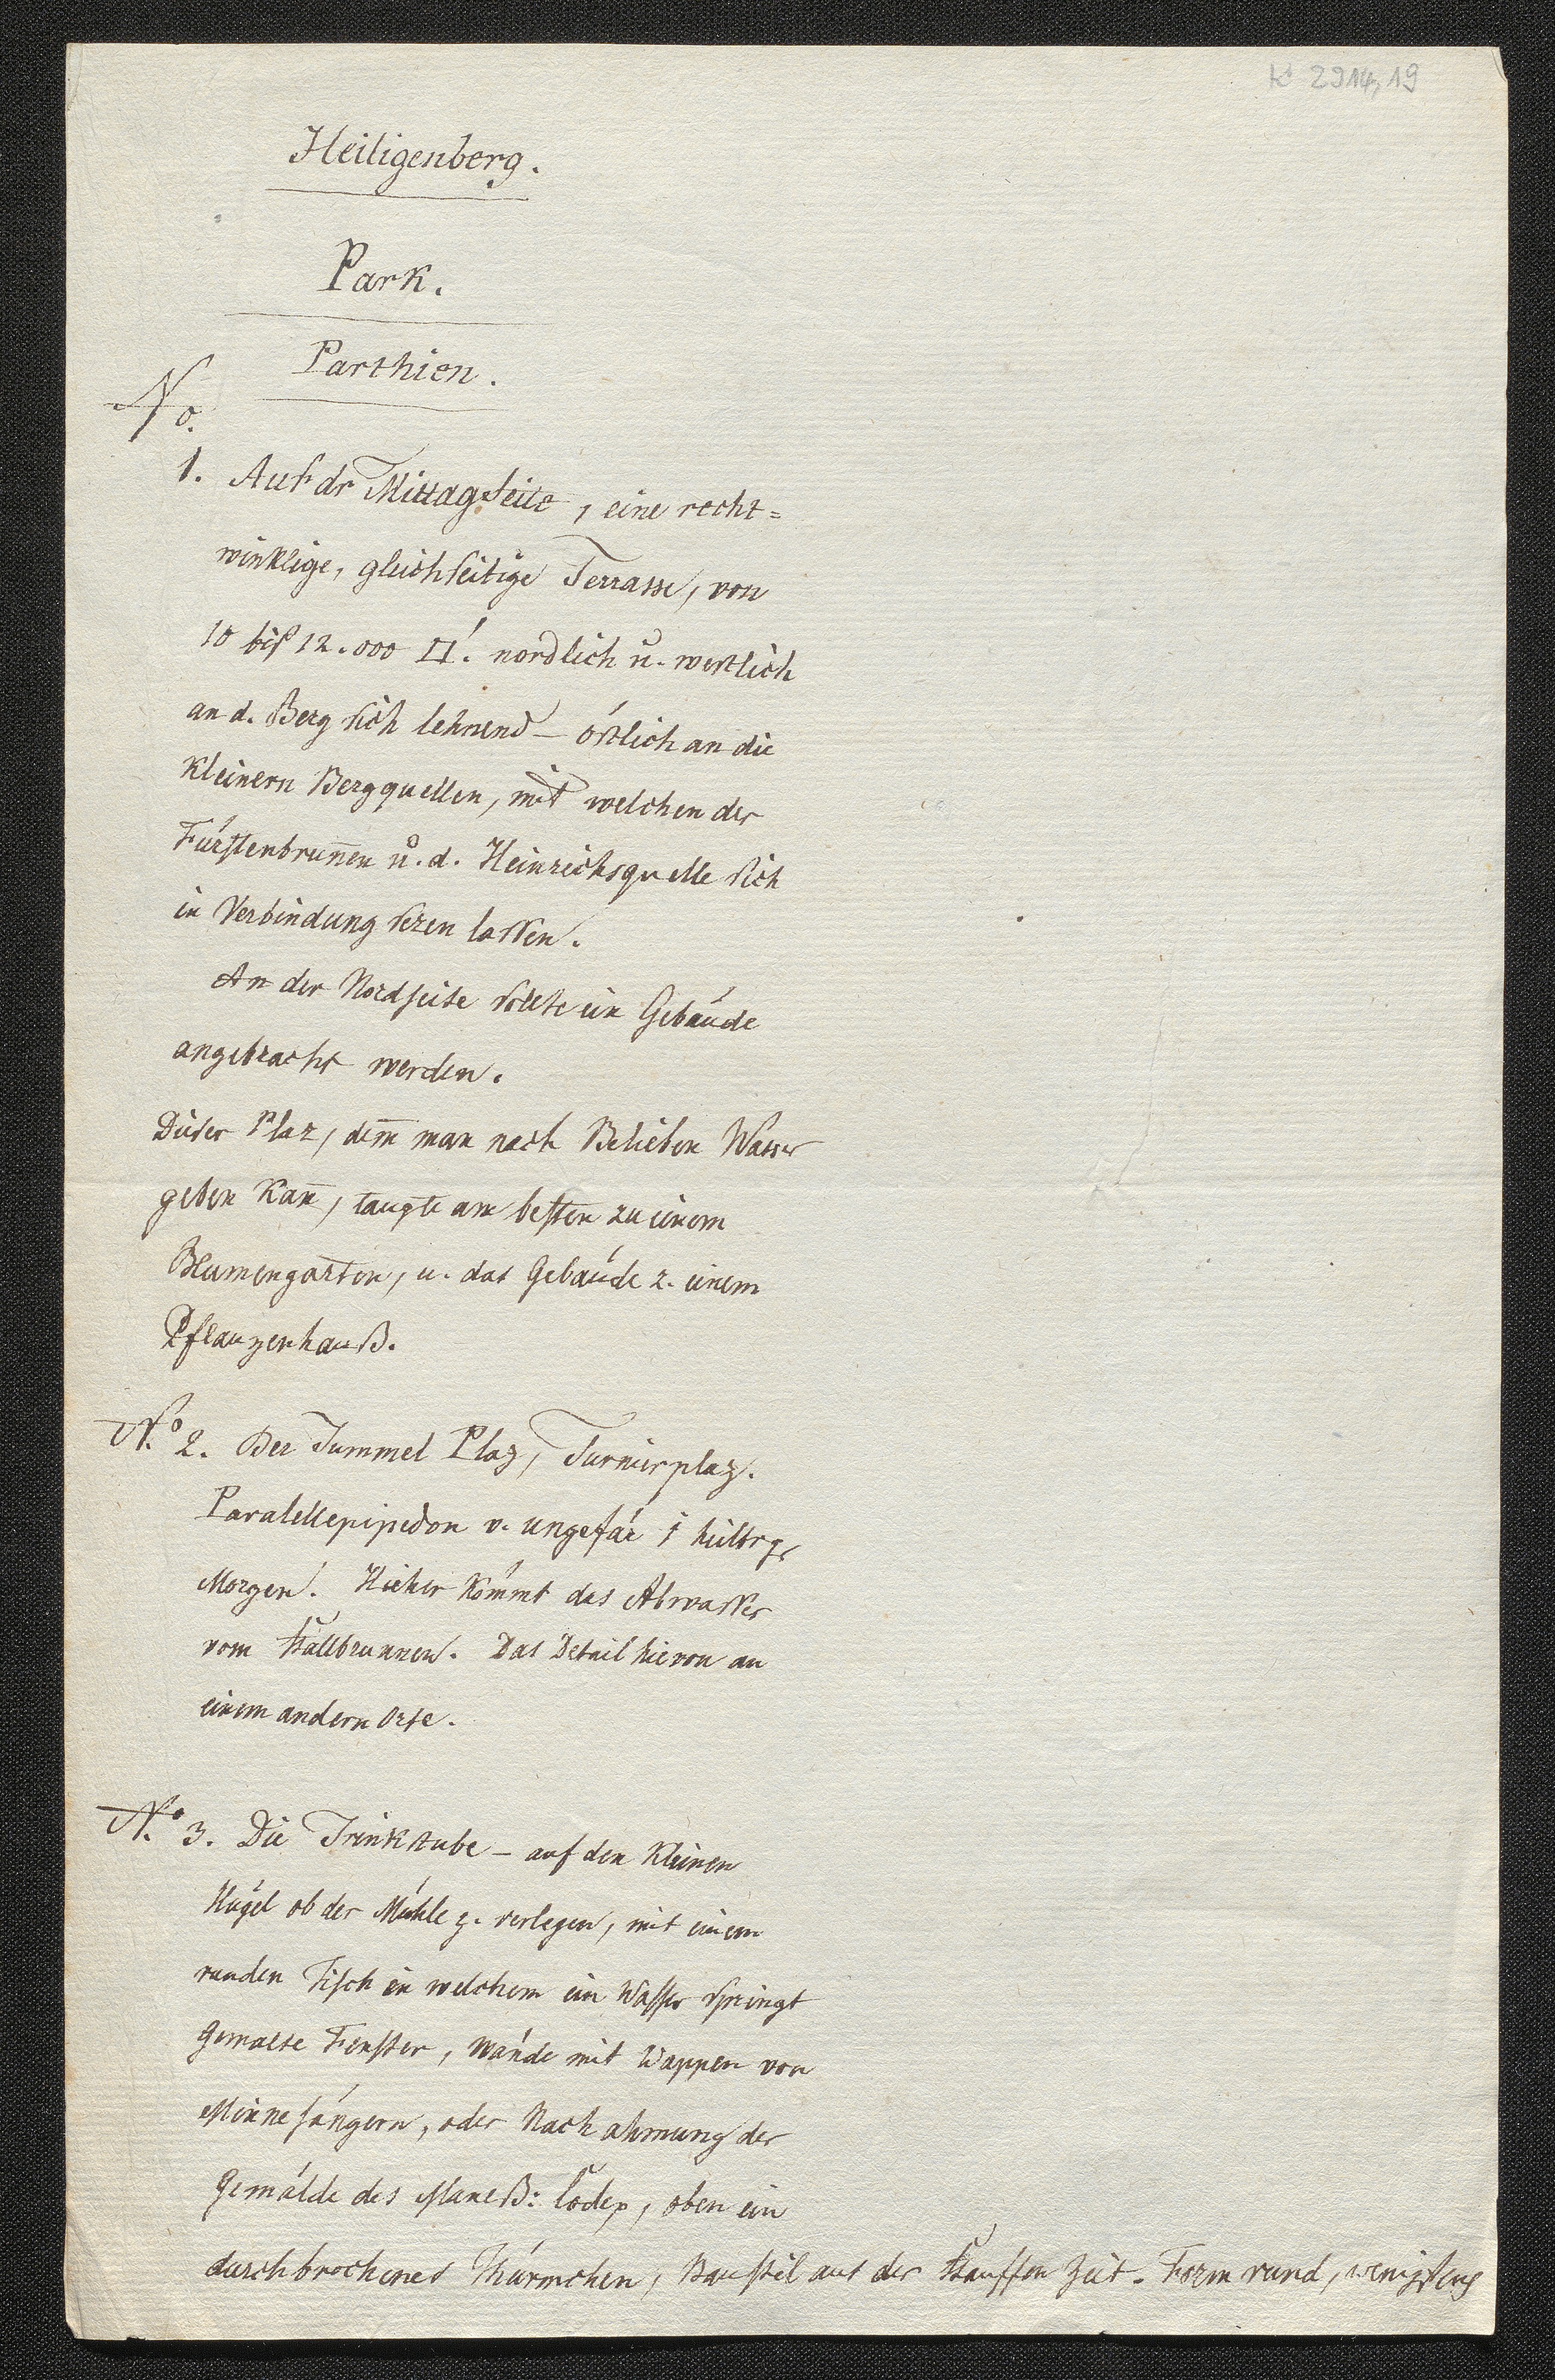 K 2914,19
Heiligenberg.
Park.
Parthien.
No.
1. Auf dr Mittagseite, eine recht=
winklige, gleichseitige Terrasse, von
10 biß 12.000 □'. nordlich u. westlich
an d. Berg sich lehnend – östlich an die
kleinern Bergquellen, mit welchen der
Fürstenbrun̄en u. d. Heinrichsquelle sich
in Verbindung sezen lassen.
An der Nordseite sollte ein Gebäude
angebracht werden.
Dieser Plaz, dem̄ man nach Belieben Wasser
geben kan̄, taugte am besten zu einem
Blumengarten, u. das Gebäude z. einem
Pflanzenhauß.
No 2. Der Tummel Plaz, Turnierplaz.
Paralellepipedon v. ungefär 1
Morgen. Hieher kömmt das Abwasser
vom Stallbrunnen. Das Detail hievon an
einem andern Orte.
No 3. Die Trinkstube – auf den kleinen
Hügel ob der Mühle z. verlegen, mit einem
runden Tisch in welchem ein Wasser springt
Gemalte Fenster, Wände mit Wappen von
Minnesängern, oder Nachahmung der
Gemälde des Maneß: Codex, oben ein
durchbrochenes Thürmchen, Baustil aus der Stauffen Zeit. Form rund, wenigstens